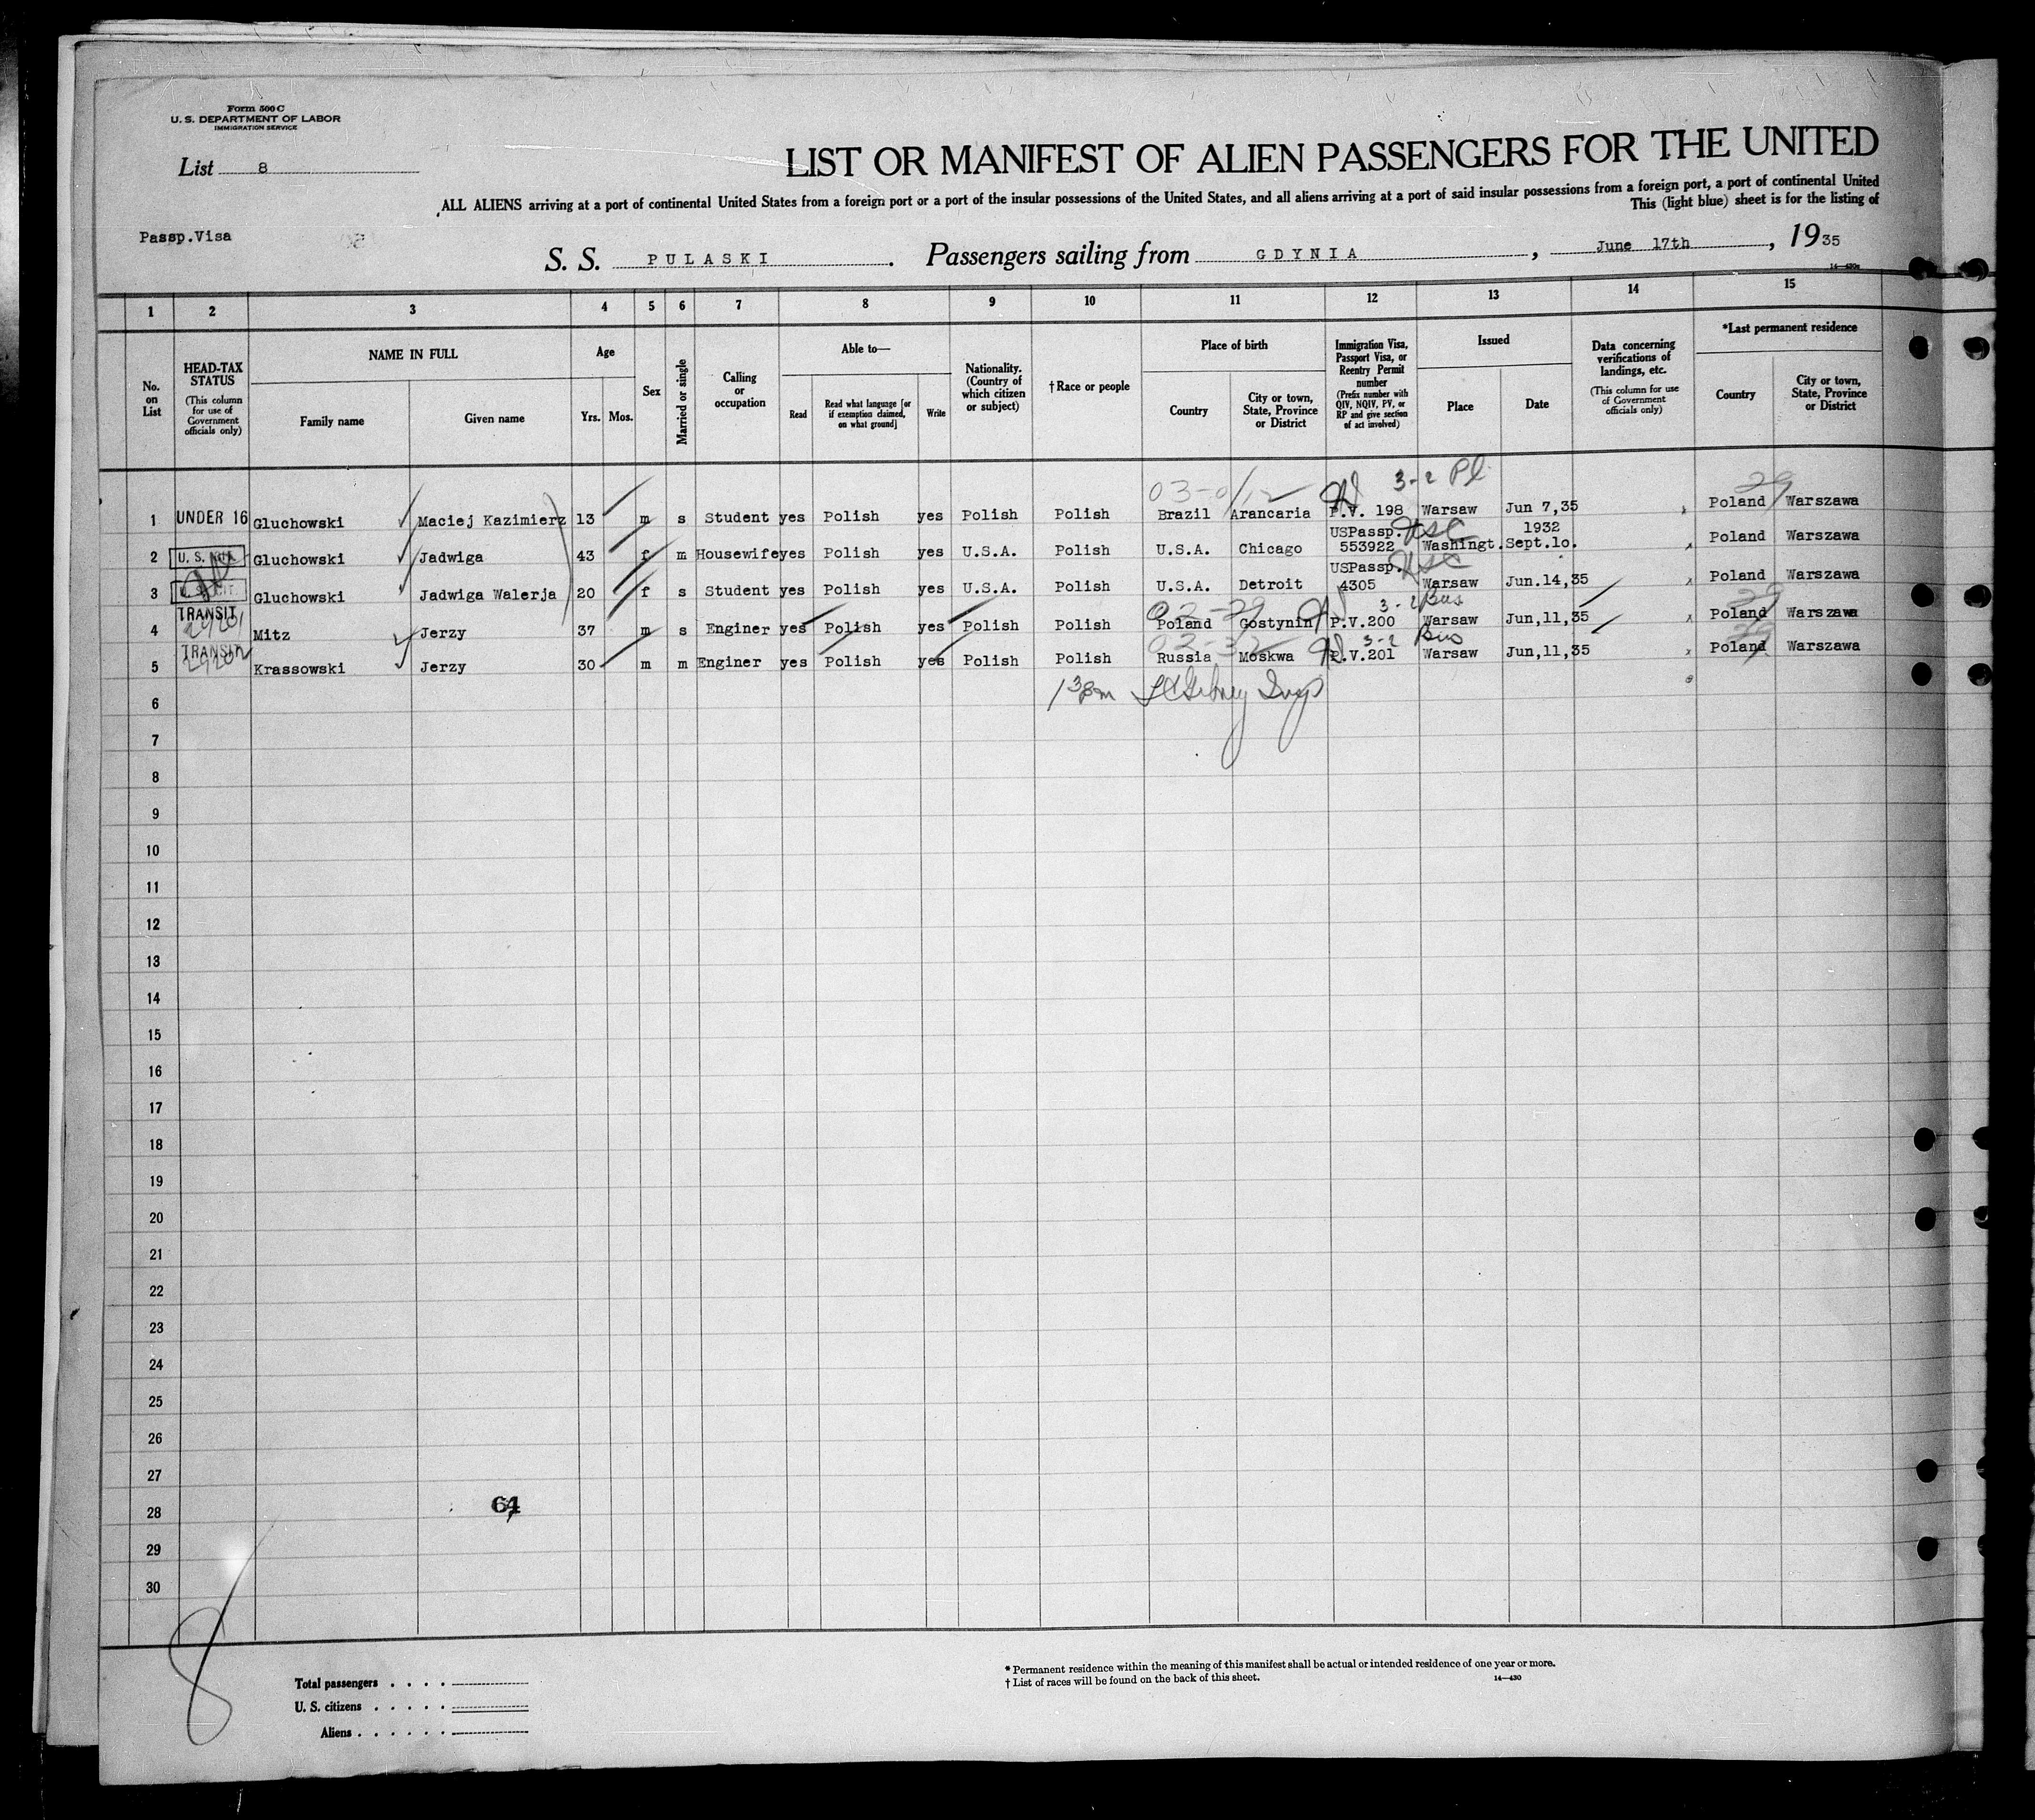 Form 500 C
U. S. DEPARTMENT OF LABOR
IMMIGRATION SERVICE
List 8
LIST OR MANIFEST OF ALIEN PASSENGERS FOR THE UNITED
ALL ALIENS arriving at a port of continental United States from a foreign port or a port of the insular possessions of the United States, and all aliens arriving at a port of said insular possessions from a foreign port, a port of continental United
This (light blue) sheet is for the listing of
Passp.Visa
S. S. PULASKI. Passengers sailing from GDYNIA, June 17th, 1935
1 2 3 4 5 6 7 8 9 10 11 12 13 14 15
No. on List
HEAD-TAX STATUS (This column for use of Government officials only)
NAME IN FULL
Family name Given name
Age
Yrs. Mos.
Sex
Married or single
Calling or occupation
Able to—
Read Read what language [or if exemption claimed, on what ground] Write
Nationality. (Country of which citizen or subject)
†Race or people
Place of birth
Country City or town, State, Province or District
Immigration Visa, Passport Visa, or Reentry Permit number (Prefix number with QIV, NQIV, PV, or RP and give section of act involved)
Issued
Place Date
Data concerning verifications of landings, etc. (This column for use of Government officials only)
*Last permanent residence
Country City or town, State, Province or District
3-2 Pl 29
1 UNDER 16 Gluchowski Maciej Kazimierz 13 m s Student yes Polish yes Polish Polish Brazil Arancaria P.V. 198 Warsaw Jun 7,35 Poland Warszawa
USPassp. 1932
2 U. S. CIT. Gluchowski Jadwiga 43 f m Housewife yes Polish yes U.S.A. Polish U.S.A. Chicago 553922 Washingt. Sept.1o. Poland Warszawa
USPassp.
3 U. S. CIT. Gluchowski Jadwiga Walerja 20 f s Student yes Polish yes U.S.A. Polish U.S.A. Detroit 4305 Warsaw Jun.14,35 Poland Warszawa
02-29 3-2 Bus 29
4 TRANSIT Mitz Jerzy 37 m s Enginer yes Polish yes Polish Polish Poland Gostynin P.V.200 Warsaw Jun,11,35 Poland Warszawa
02-32 3-2 Bus
5 TRANSIT Krassowski Jerzy 30 m m Enginer yes Polish yes Polish Polish Russia Moskwa P.V.201 Warsaw Jun,11,35 Poland Warszawa
6
7
8
9
10
11
12
13
14
15
16
17
18
19
20
21
22
23
24
25
26
27
28
29
30
8
Total passengers
U. S. citizens
Aliens
* Permanent residence within the meaning of this manifest shall be actual or intended residence of one year or more.
† List of races will be found on the back of this sheet.
14—430